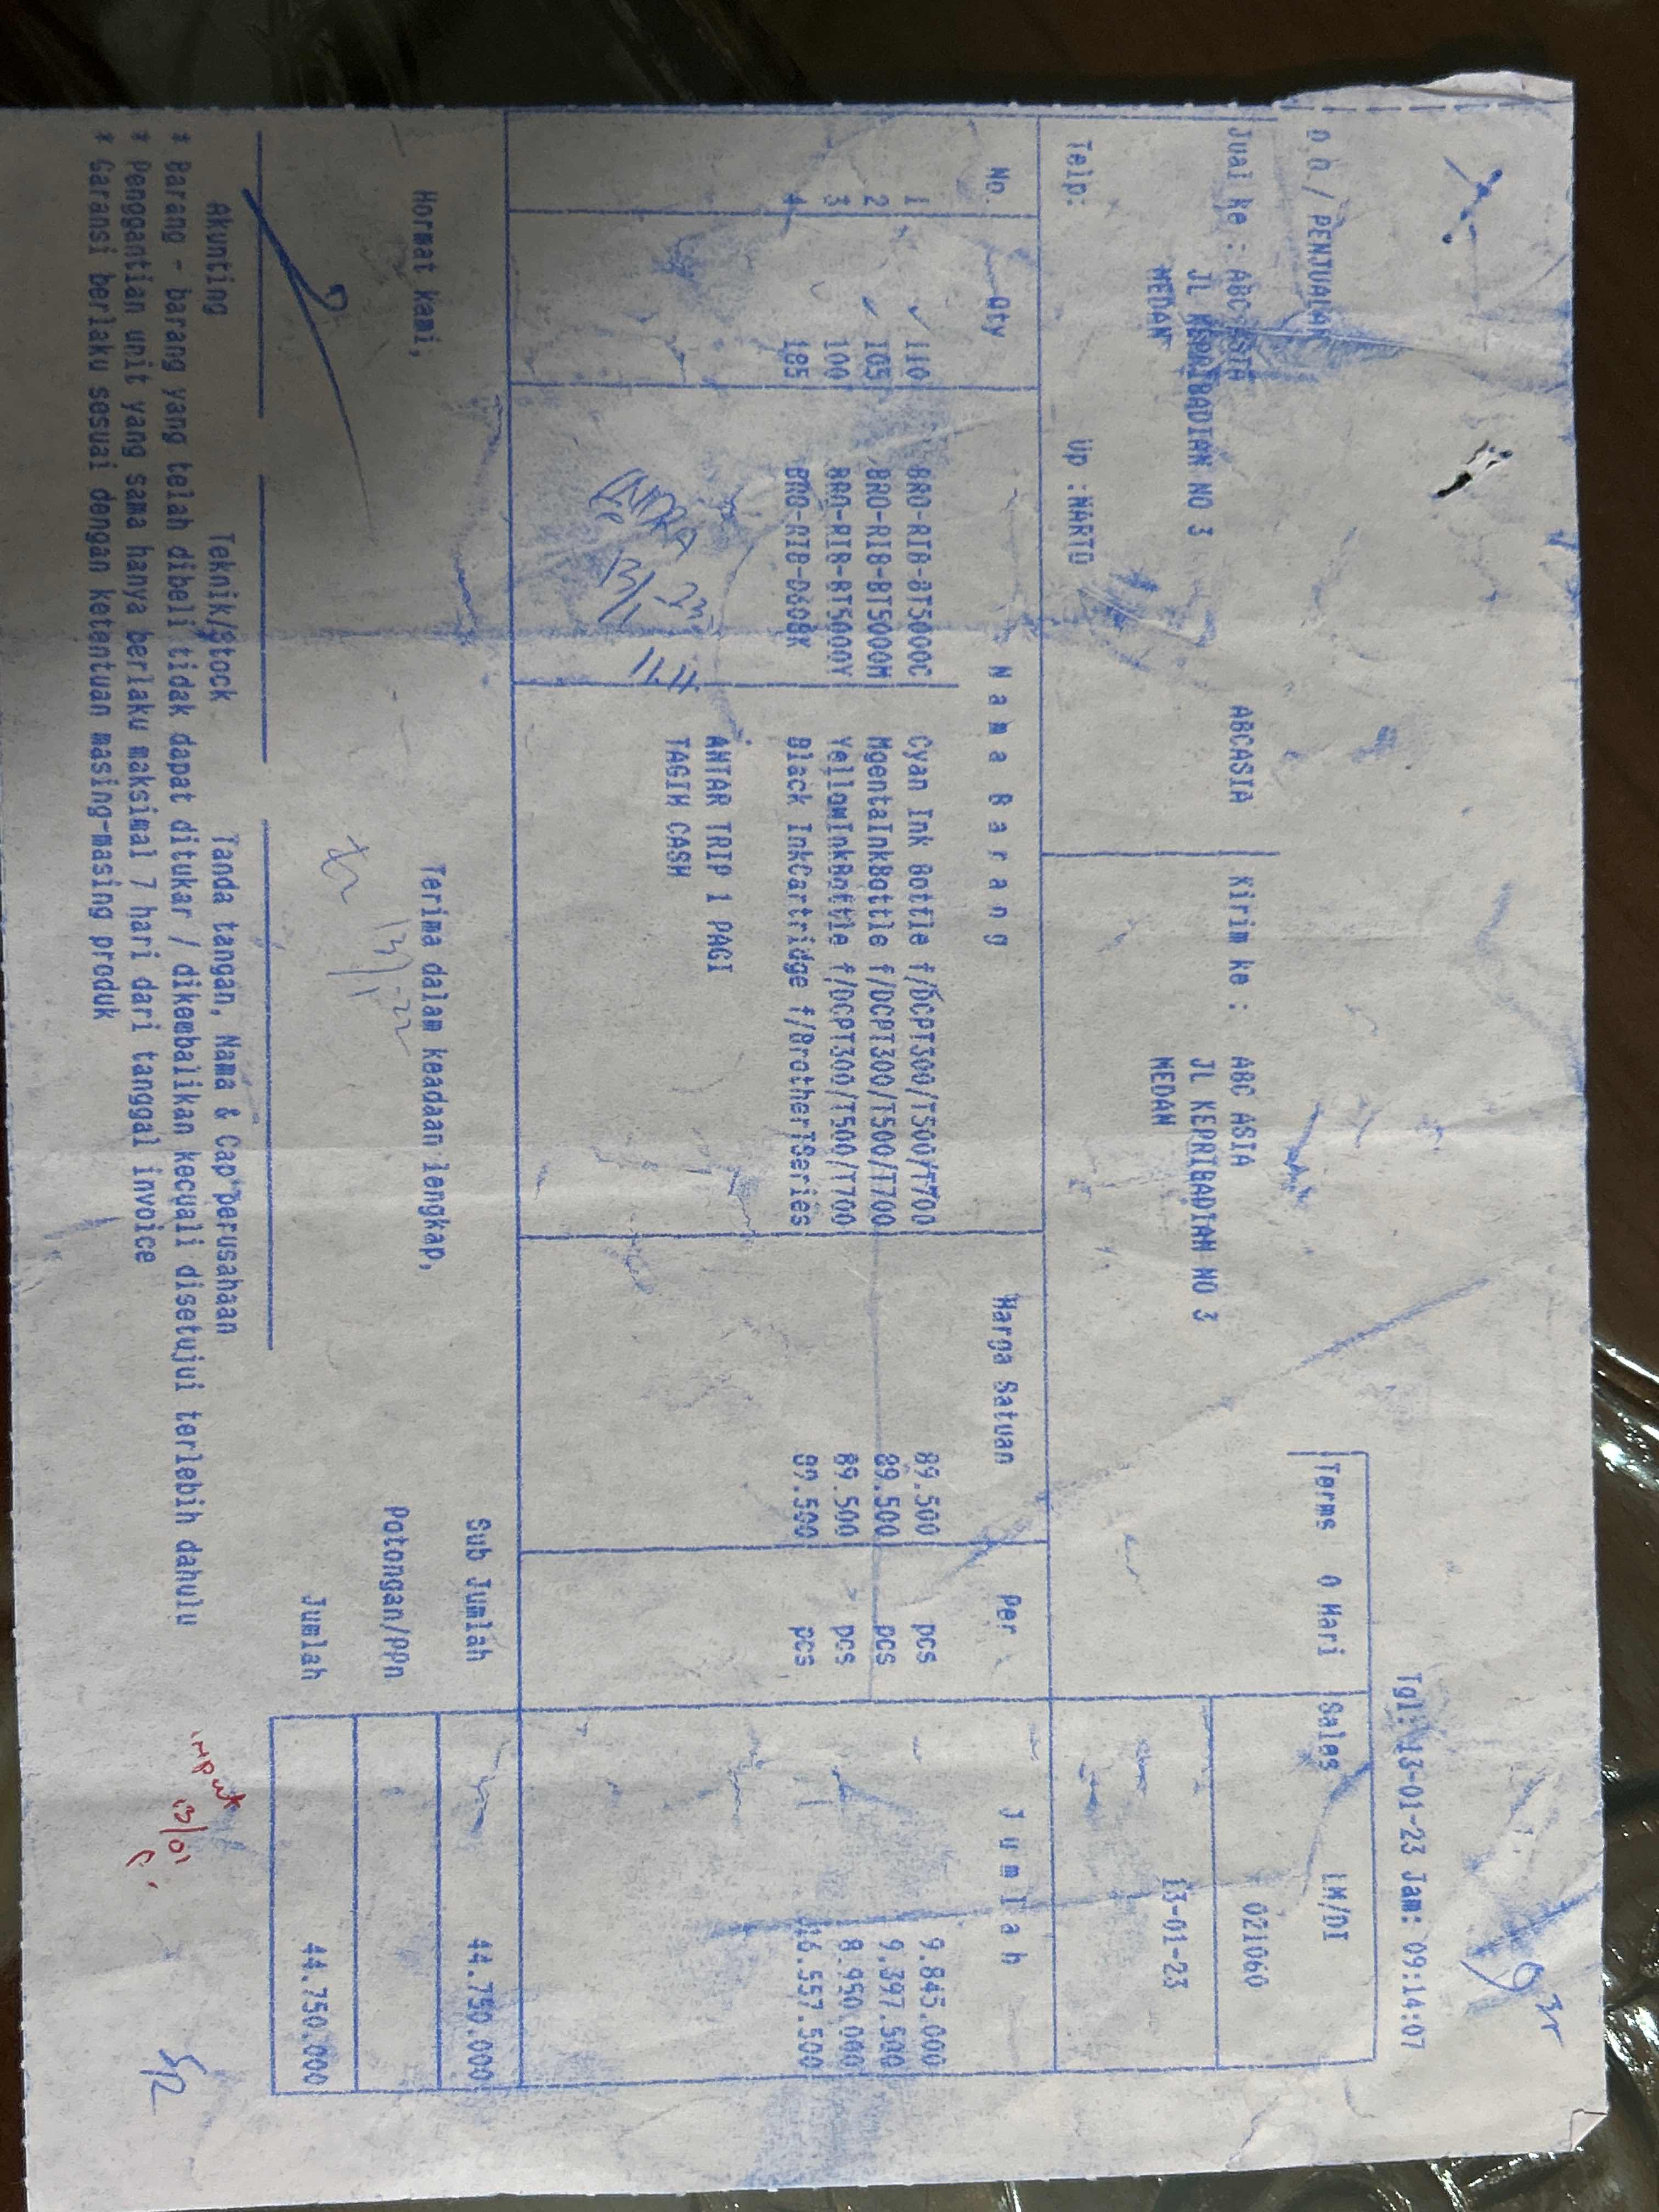 Tgl: 13-01-23 Jam: 09:14:07
D O / PENJUALAN
Terms 0 Hari Sales LM/DI
Jual ke : ABC ASIA ABCASIA Kirim ke : ABC ASIA 021060
JL KEPRIBADIAN NO 3 JL KEPRIBADIAN NO 3
MEDAN MEDAN 13-01-23
Telp: Up :WARTO
No. Qty N a m a B a r a n g Harga Satuan Per J u m l a h
1 110 BRO-RIB-BT5000C Cyan Ink Bottle f/DCPT300/T500/T700 89.500 pcs 9.845.000
2 105 BRO-RIB-BT5000M MgentaInkBottle f/DCPT300/T500/T700 89.500 pcs 9.397.500
3 100 BRO-RIB-BT5000Y YellowInkBottle f/DCPT300/T500/T700 89.500 pcs 8.950.000
4 185 BRO-RIB-D60BK Black InkCartridge f/BrotherTSeries 89.500 pcs 16.557.500
ANTAR TRIP 1 PAGI
TAGIH CASH
13/1-23
11.11
Sub Jumlah 44.750.000
Hormat kami, Terima dalam keadaan lengkap,
Potongan/PPn
13/1-22
Jumlah 44.750.000
Akunting Teknik/Stock Tanda tangan, Nama & Cap perusahaan
* Barang - barang yang telah dibeli tidak dapat ditukar / dikembalikan kecuali disetujui terlebih dahulu
* Penggantian unit yang sama hanya berlaku maksimal 7 hari dari tanggal invoice
* Garansi berlaku sesuai dengan ketentuan masing-masing produk
input
13/01